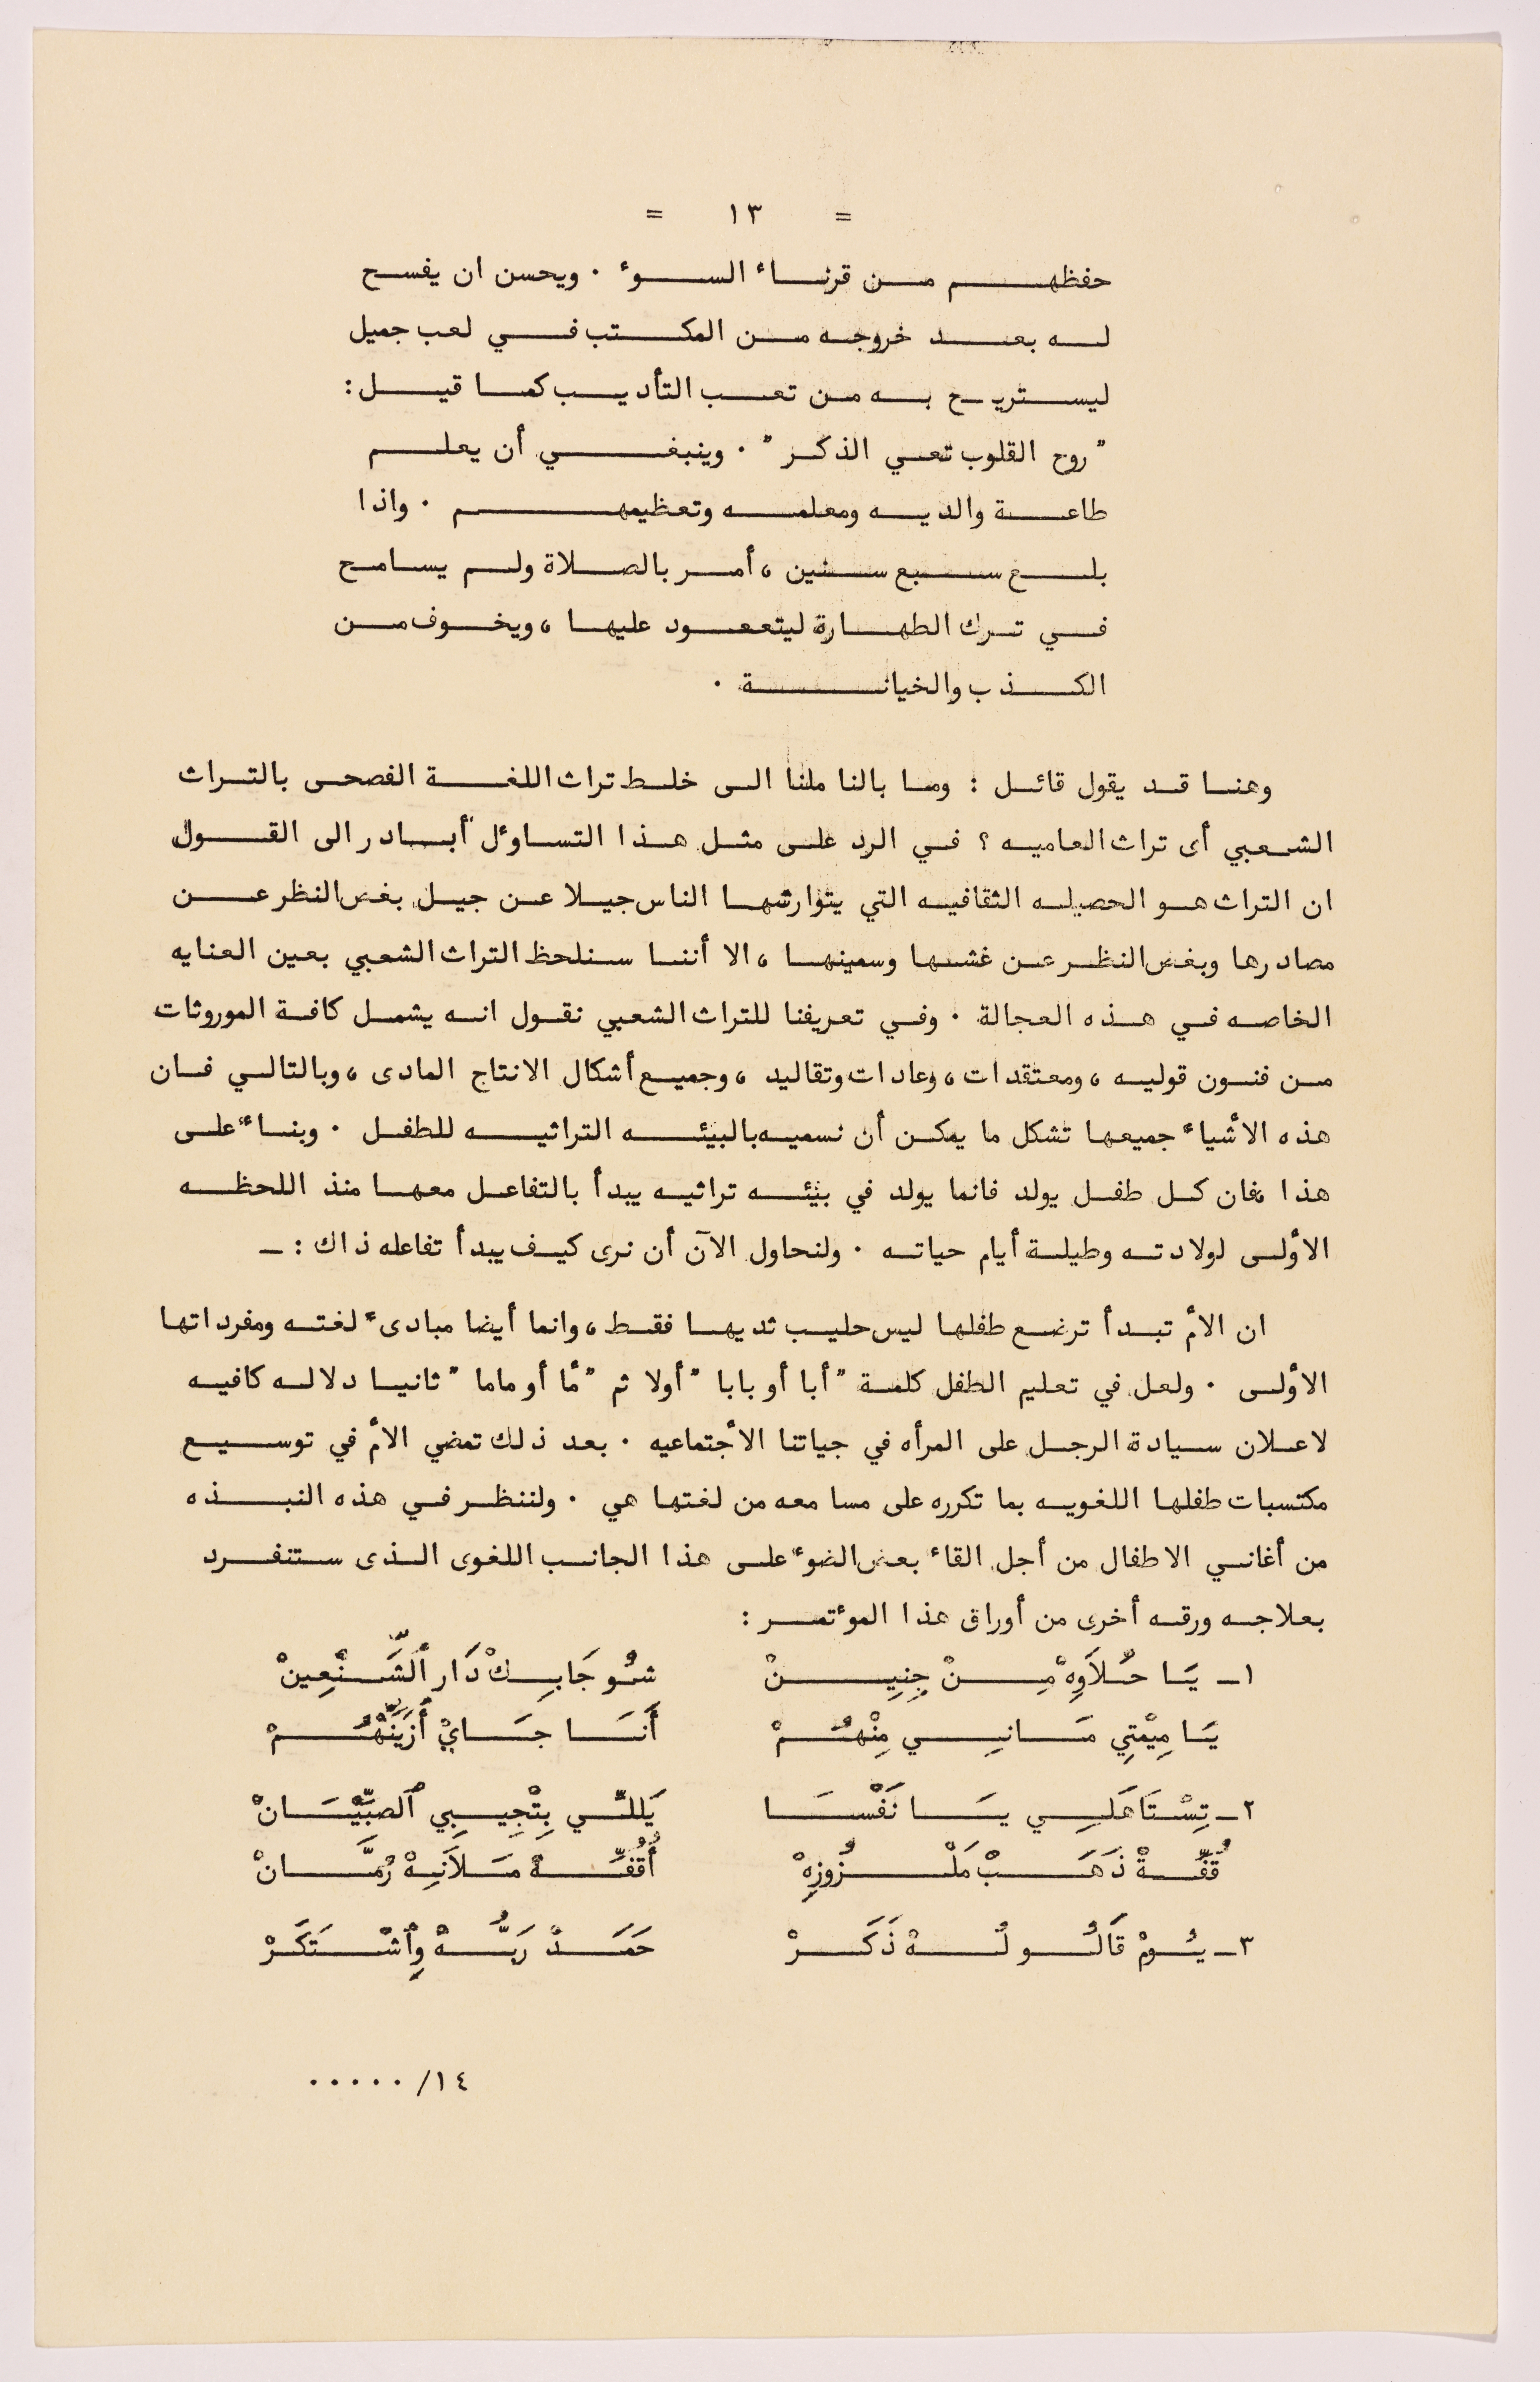 = ١٣ =
حفظهم من قرناء السوء . ويحسن ان يفسح
له بعد خروجه من المكتب في لعب جميل
ليستريح به من تعب التأديب كما قيل :
" روح القلوب تعي الذكر " . وينبغي أن يعلم
طاعة والديه ومعلمه وتعظيمهم . واذا
بلغ سبع سنين ، أمر بالصلاة ولم يسامح
في ترك الطهارة ليتعود عليها ، ويخوف من
الكذب والخيانة .
وهنا قد يقول قائل : وما بالنا ملنا الى خلط تراث اللغة الفصحى بالتراث
الشعبي أى تراث العاميه ؟ في الرد على مثل هذا التساؤل أبادر الى القول
ان التراث هو الحصيله الثقافيه التي يتوارثها الناس جيلا عن جيل بغض النظر عن
مصادرها وبغض النظر عن غثها وسمينها ، الا أننا سنلحظ التراث الشعبي بعين العنايه
الخاصه في هذه العجالة . وفي تعريفنا للتراث الشعبي نقول انه يشمل كافة الموروثات
من فنون قوليه ، ومعتقدات ، وعادات وتقاليد ، وجميع أشكال الانتاج المادى ، وبالتالي فان
هذه الأشياء جميعها تشكل ما يمكن أن نسميه بالبيئه التراثيه للطفل . وبناء على
هذا فان كل طفل يولد فانما يولد في بيئه تراثيه يبدأ بالتفاعل معها منذ اللحظه
الأولى لولادته وطيلة أيام حياته . ولنحاول الآن أن نرى كيف يبدأ تفاعله ذاك : ـ
ان الأم تبدأ ترضع طفلها ليس حليب ثديها فقط ، وانما أيضا مبادىء لغته ومفرداتها
الأولى . ولعل في تعليم الطفل كلمة " أبا أو بابا " أولا ثم " مّا أو ماما " ثانيا دلاله كافيه
لاعلان سيادة الرجل على المرأه في حياتنا الأجتماعيه . بعد ذلك تمضي الأم في توسيع
مكتسبات طفلها اللغويه بما تكرره على مسا معه من لغتها هي . ولننظر في هذه النبذه
من أغاني الاطفال من أجل القاء بعض الضوء على هذا الجانب اللغوى الذى ستنفرد
بعلاجه ورقه أخرى من أوراق هذا المؤتمر :
١ـ يَا حْلاَوِهْ مِنْ جِنِينْ شُو جَابِكْ دَار ٱلشَّنْعِينْ
يَا مِيْمْتِي مَانِي مِنْهُمْ أَنَا جَايْ أَزَيِّنْهُمْ
٢ـ تِسْتَاهَلِي يَا نَفْسَا يَللِّي بِتْجِيبِي ٱلصبْيَّانْ
قُفِّةْ ذَهَبْ مَلْزُوزِهْ أُقُفِّةْ مَلاَنِهْ رُمَّانْ
٣ـ يُومْ قَالُو لُهْ ذَكَرْ حَمَدْ رَبُّهْ وِٱشْتَكَرْ
١٤/ . . . . .